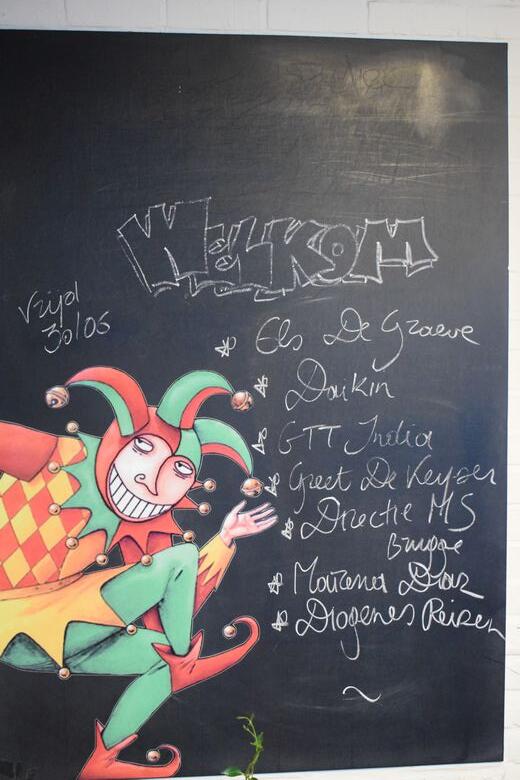 WELKOM
Vrijd
30/06
Els De Graeve
Daikin
GTT India
Greet De Keyser
Directie MS
Brugge
Diaz
Diogenes Reizen
~